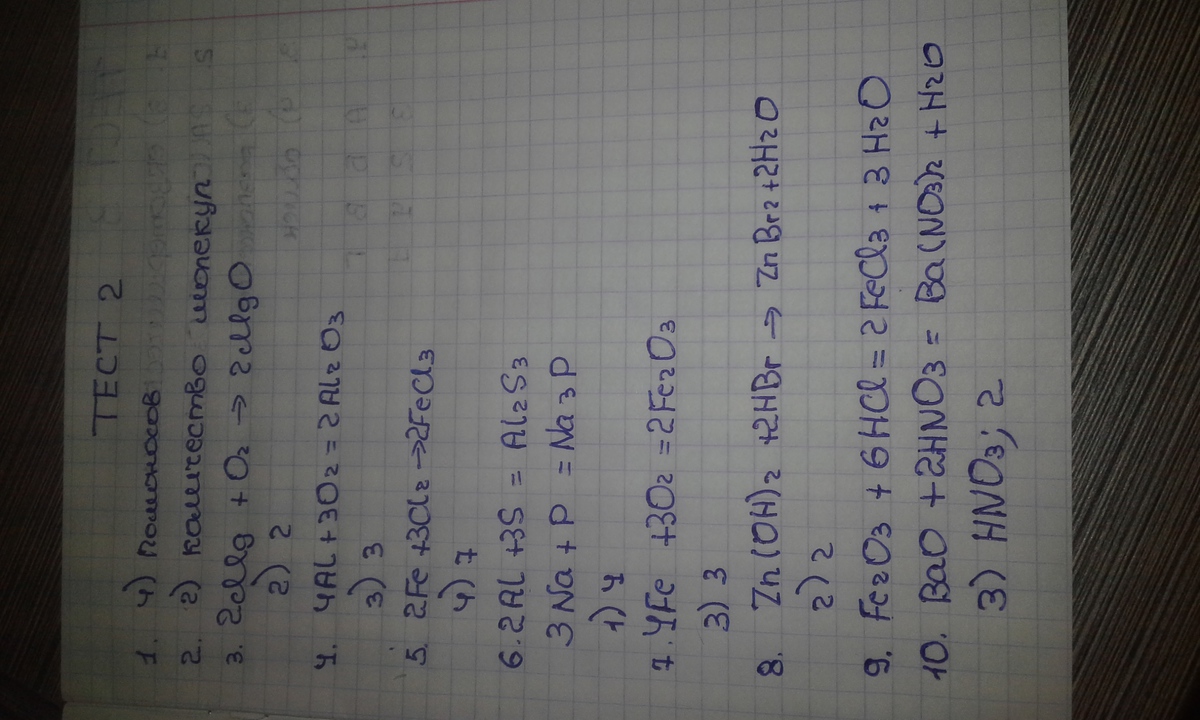 ТЕСТ 2
1. 4) Ломоносов
2. 2) количество молекул
3. 2Mg + O₂ → 2MgO
2) 2
4. 4Al + 3O₂ = 2Al₂O₃
3) 3
5. 2Fe + 3Cl₂ → 2FeCl₃
4) 7
6. 2Al + 3S = Al₂S₃
3Na + P = Na₃P
1) 4
7. 4Fe + 3O₂ = 2Fe₂O₃
3) 3
8. Zn(OH)₂ + 2HBr → ZnBr₂ + 2H₂O
2) 2
9. Fe₂O₃ + 6HCl = 2FeCl₃ + 3H₂O
10. BaO + 2HNO₃ = Ba(NO₃)₂ + H₂O
3) HNO₃; 2